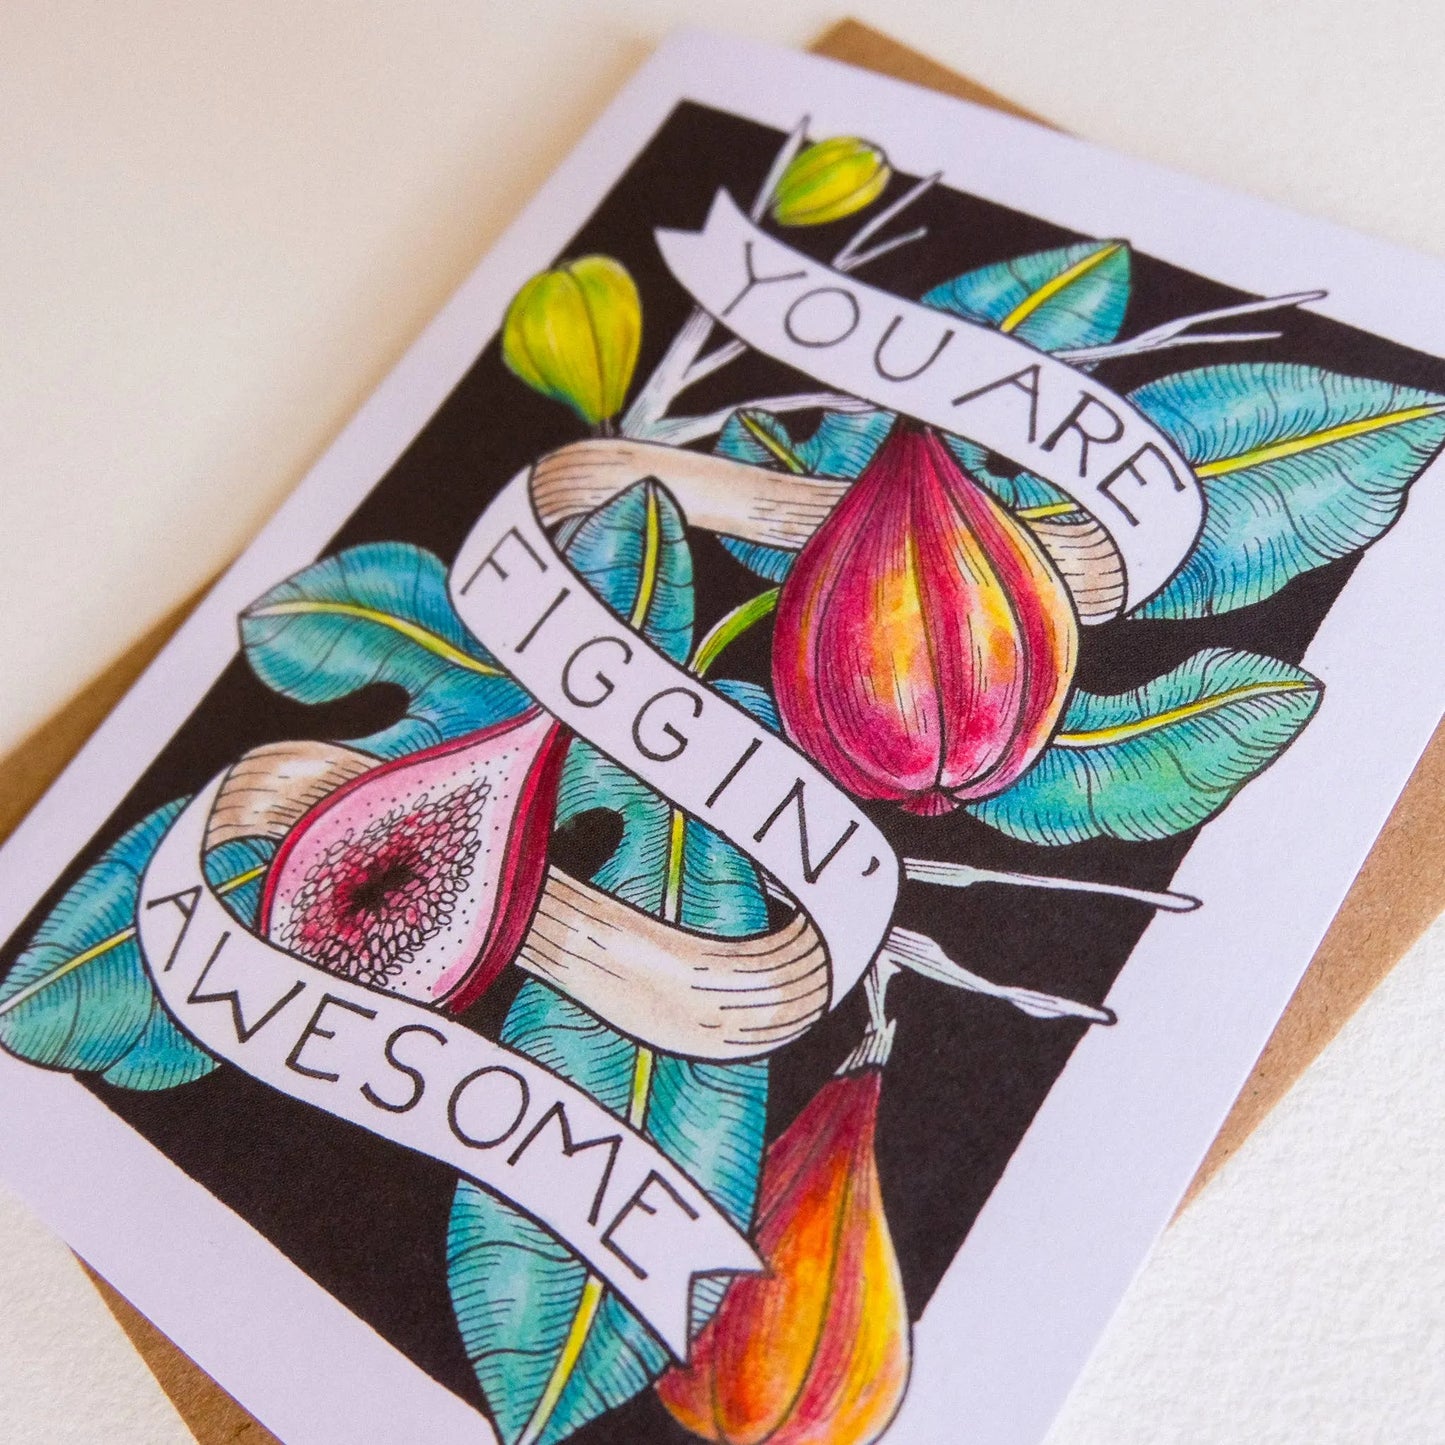 YOU ARE
FIGGIN'
AWESOME